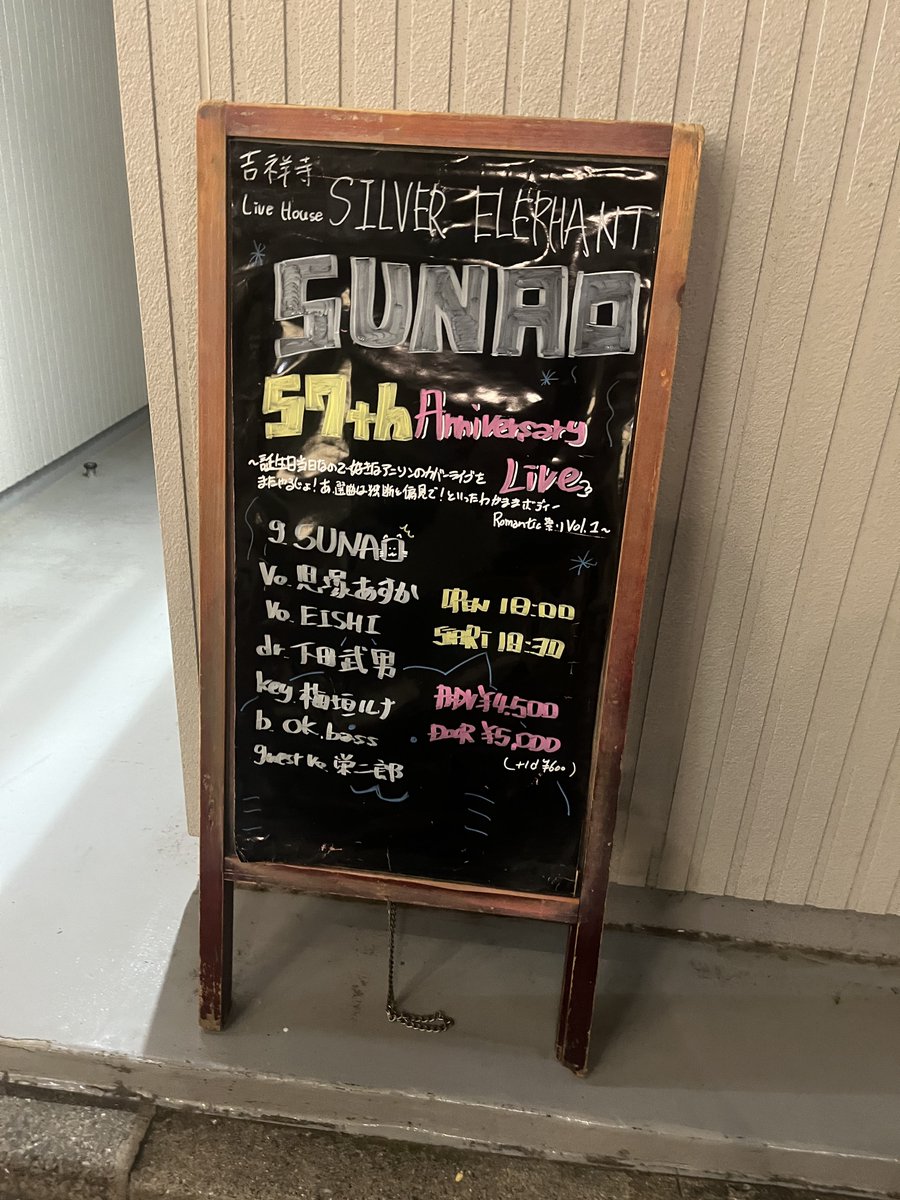 吉祥寺
Live House SILVER ELEPHANT
SUNAO
57th Anniversary
Live
〜誕生日当日なので好きなアニソンのカバーライブを
またやるじょ!あ、選曲は独断と偏見で!といったわがままボディー
Romantic祭り Vol.1〜
g SUNAO
Vo. 思塚あすか
Vo. EISHI
dr. 下田武男
key. 梅垣ルナ
b. OK.bass
guest Vo. 栄二郎
OPEN 18:00
START 18:30
ADV ¥4,500
DOOR ¥5,000
(+1d ¥600)